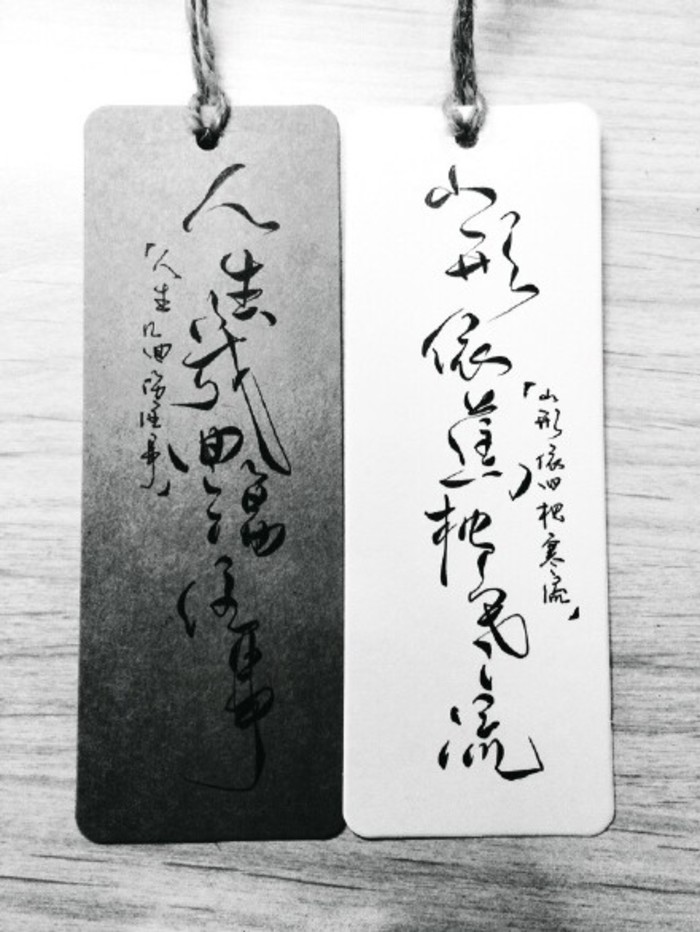 人生幾回傷往事
「人生几回傷往事」
山形依舊枕寒流
「山形依旧枕寒流」